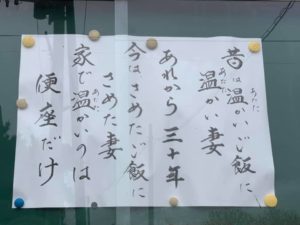 昔は温かいご飯に
温かい妻
あれから三十年
今はさめたご飯に
さめた妻
家で温かいのは
便座だけ